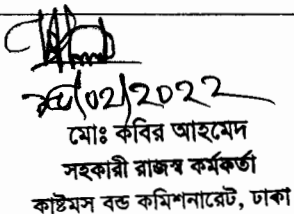 /02/2022
মোঃ কবির আহমেদ
সহকারী রাজস্ব কর্মকর্তা
কাষ্টমস বন্ড কমিশনারেট, ঢাকা